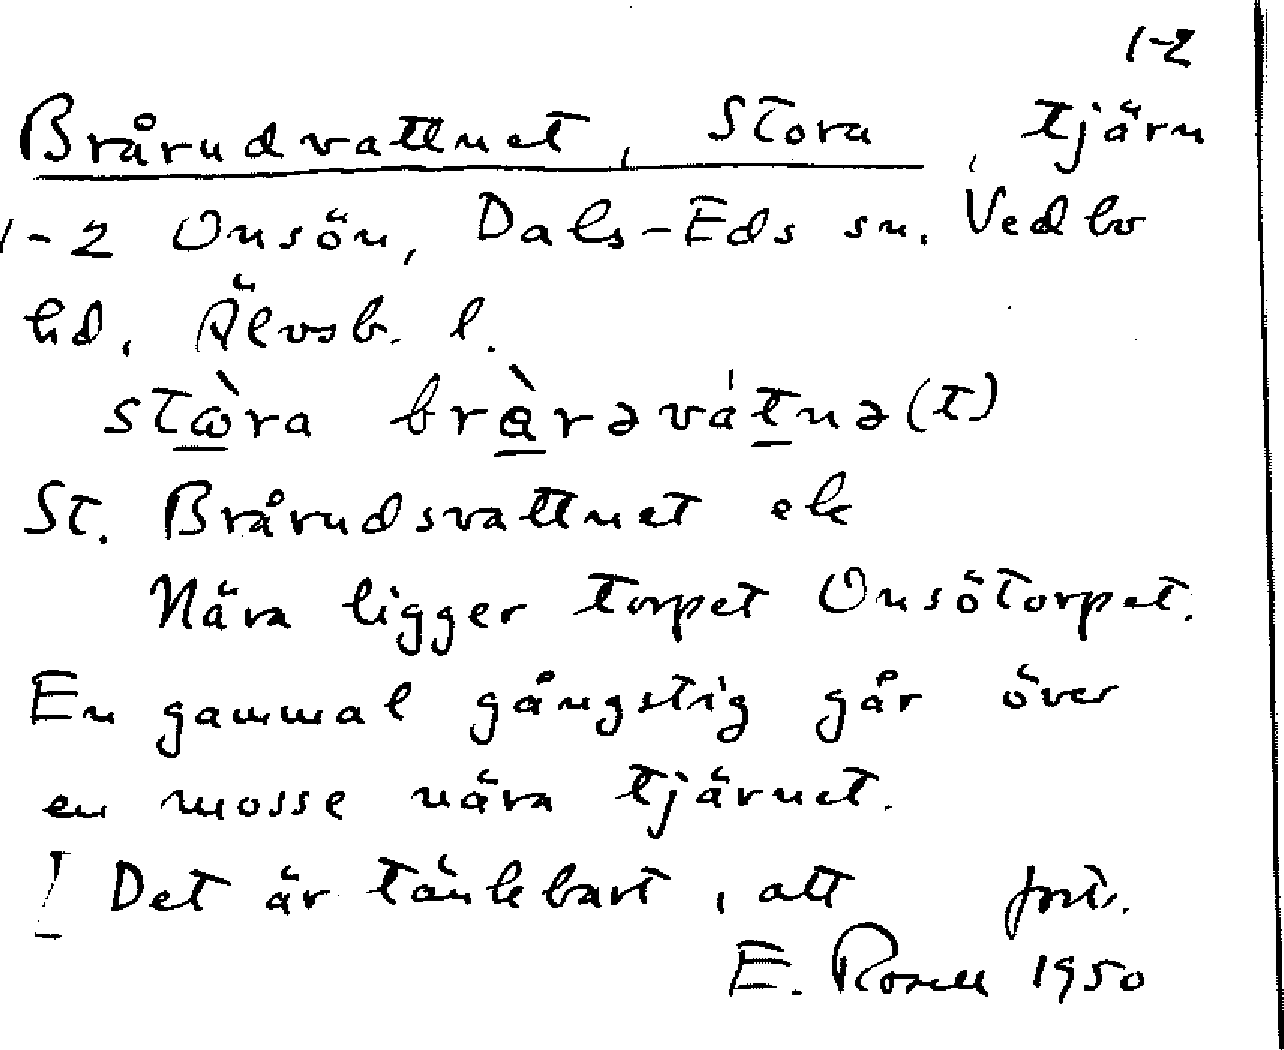 1-2
Brårudvattnet, Stora, tjärn
1-2 Onsön, Dals-Eds sn. Vedbo
hd, Älvsb. l.
stòra bràrəvátnə(t)
St. Brårudsvattnet ek
Nära ligger torpet Onsötorpet.
En gammal gångstig går över
en mosse nära tjärnet.
[ Det är tänkbart, att forts.
E. Rosell 1950